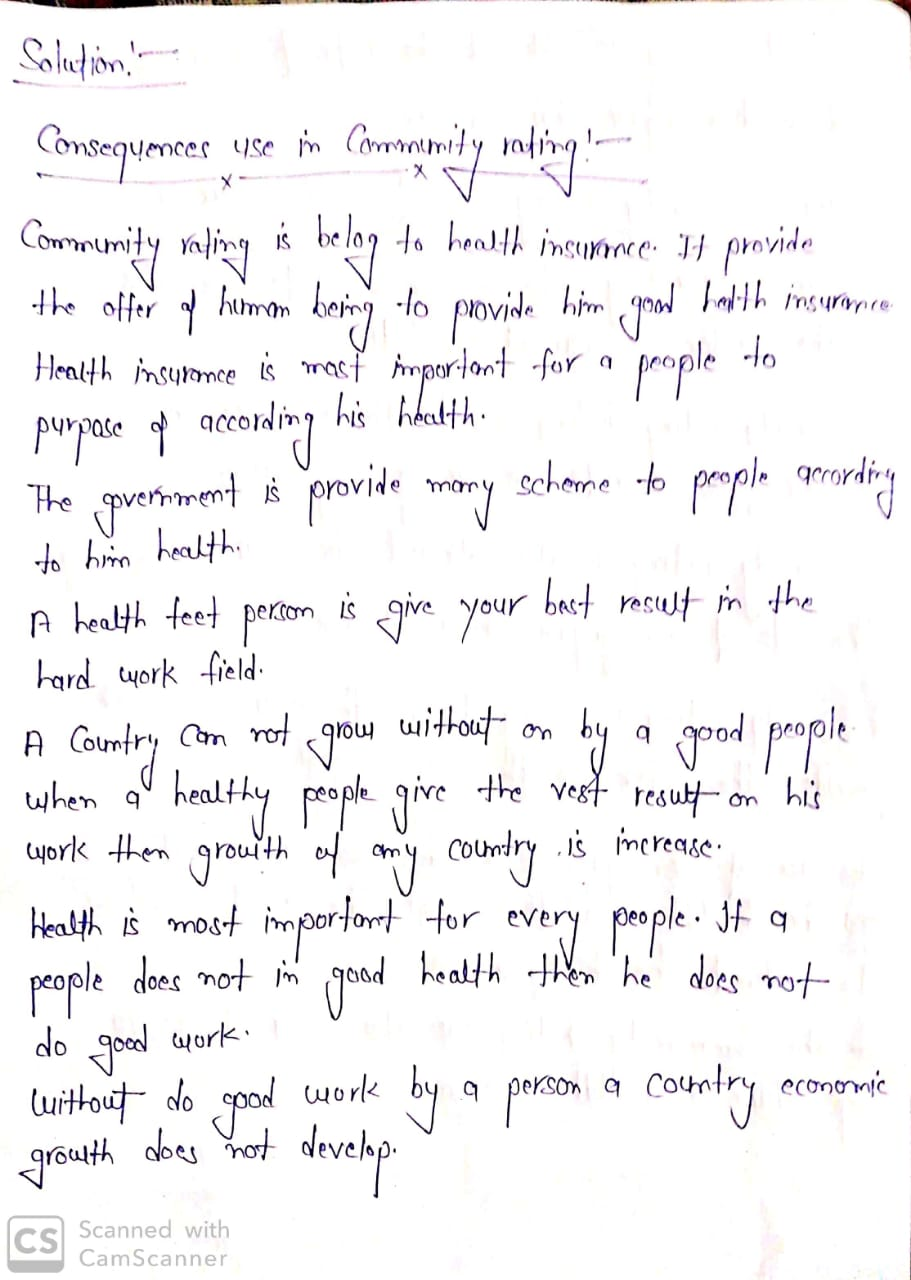 Solution:-
Consequences use in Community rating:-
Community rating is belog to health insurance. It provide
the offer of human being to provide him good health insurance
Health insurance is most important for a people to
purpose of according his health.
The government is provide many scheme to people according
to him health.
A health feet person is give your best result in the
hard work field.
A Country can not grow without on by a good people.
when a healthy people give the vest result on his
work then growth of any country is increase.
Health is most important for every people. If a
people does not in good health then he does not
do good work.
Without do good work by a person a country economic
growth does not develop.
CS Scanned with
CamScanner